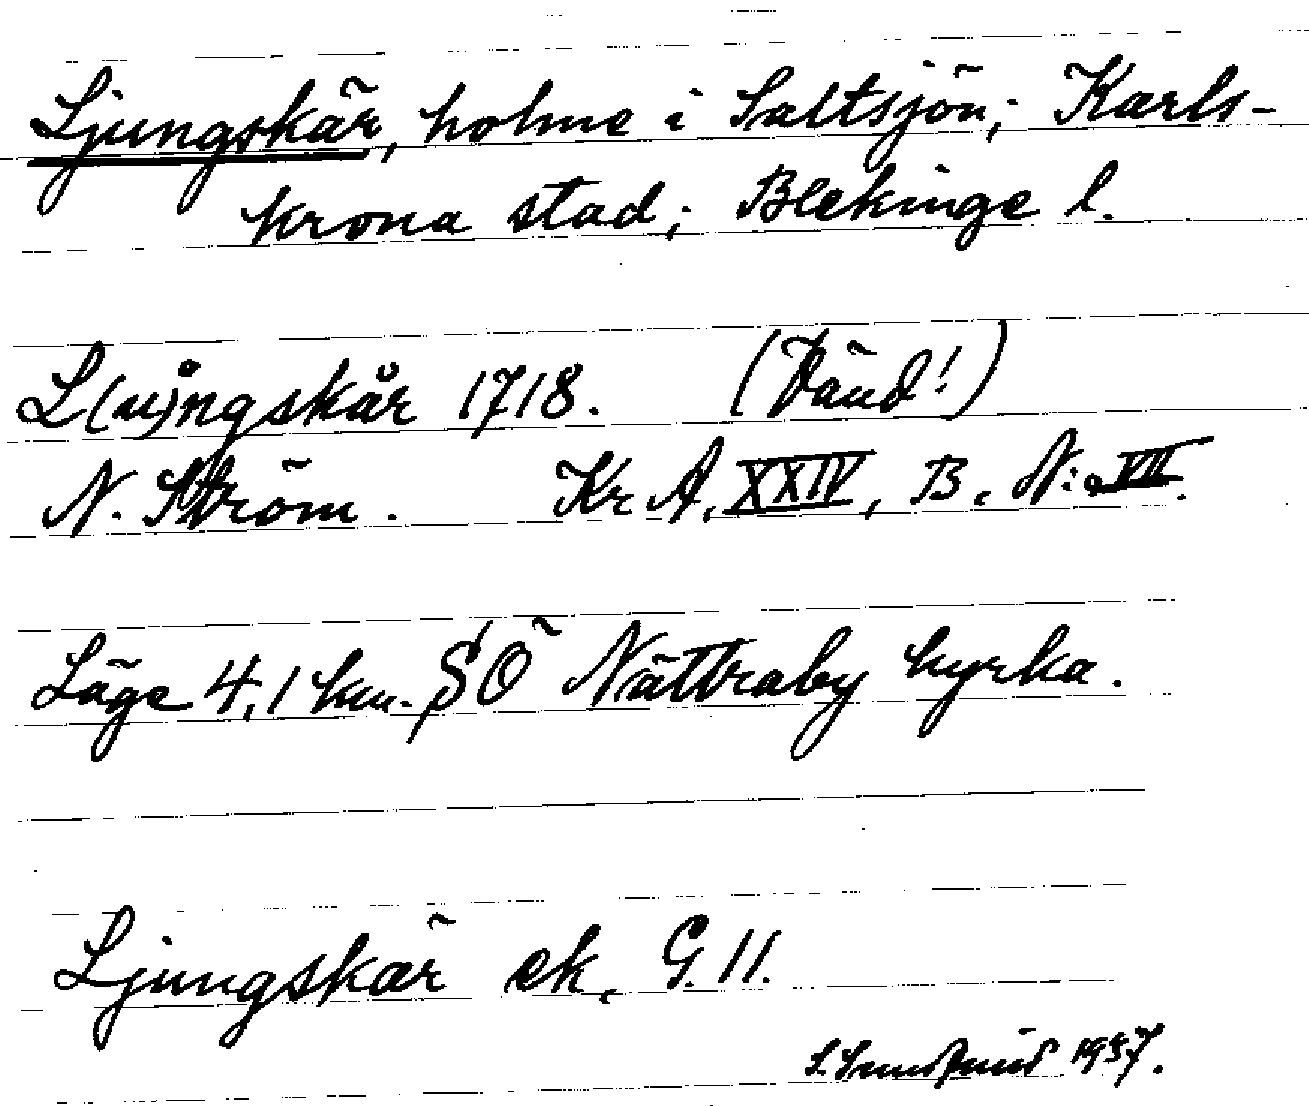 Ljungskär, holme i Saltsjön; Karls-
krona stad; Blekinge l.
L(u)ngskår 1718. (Vänd!)
N. Ström. Kr A, XXIV, B, N:o VII.
Läge 4,1 km. SÖ Nättraby kyrka.
Ljungskär ek. G. 11.
1937.